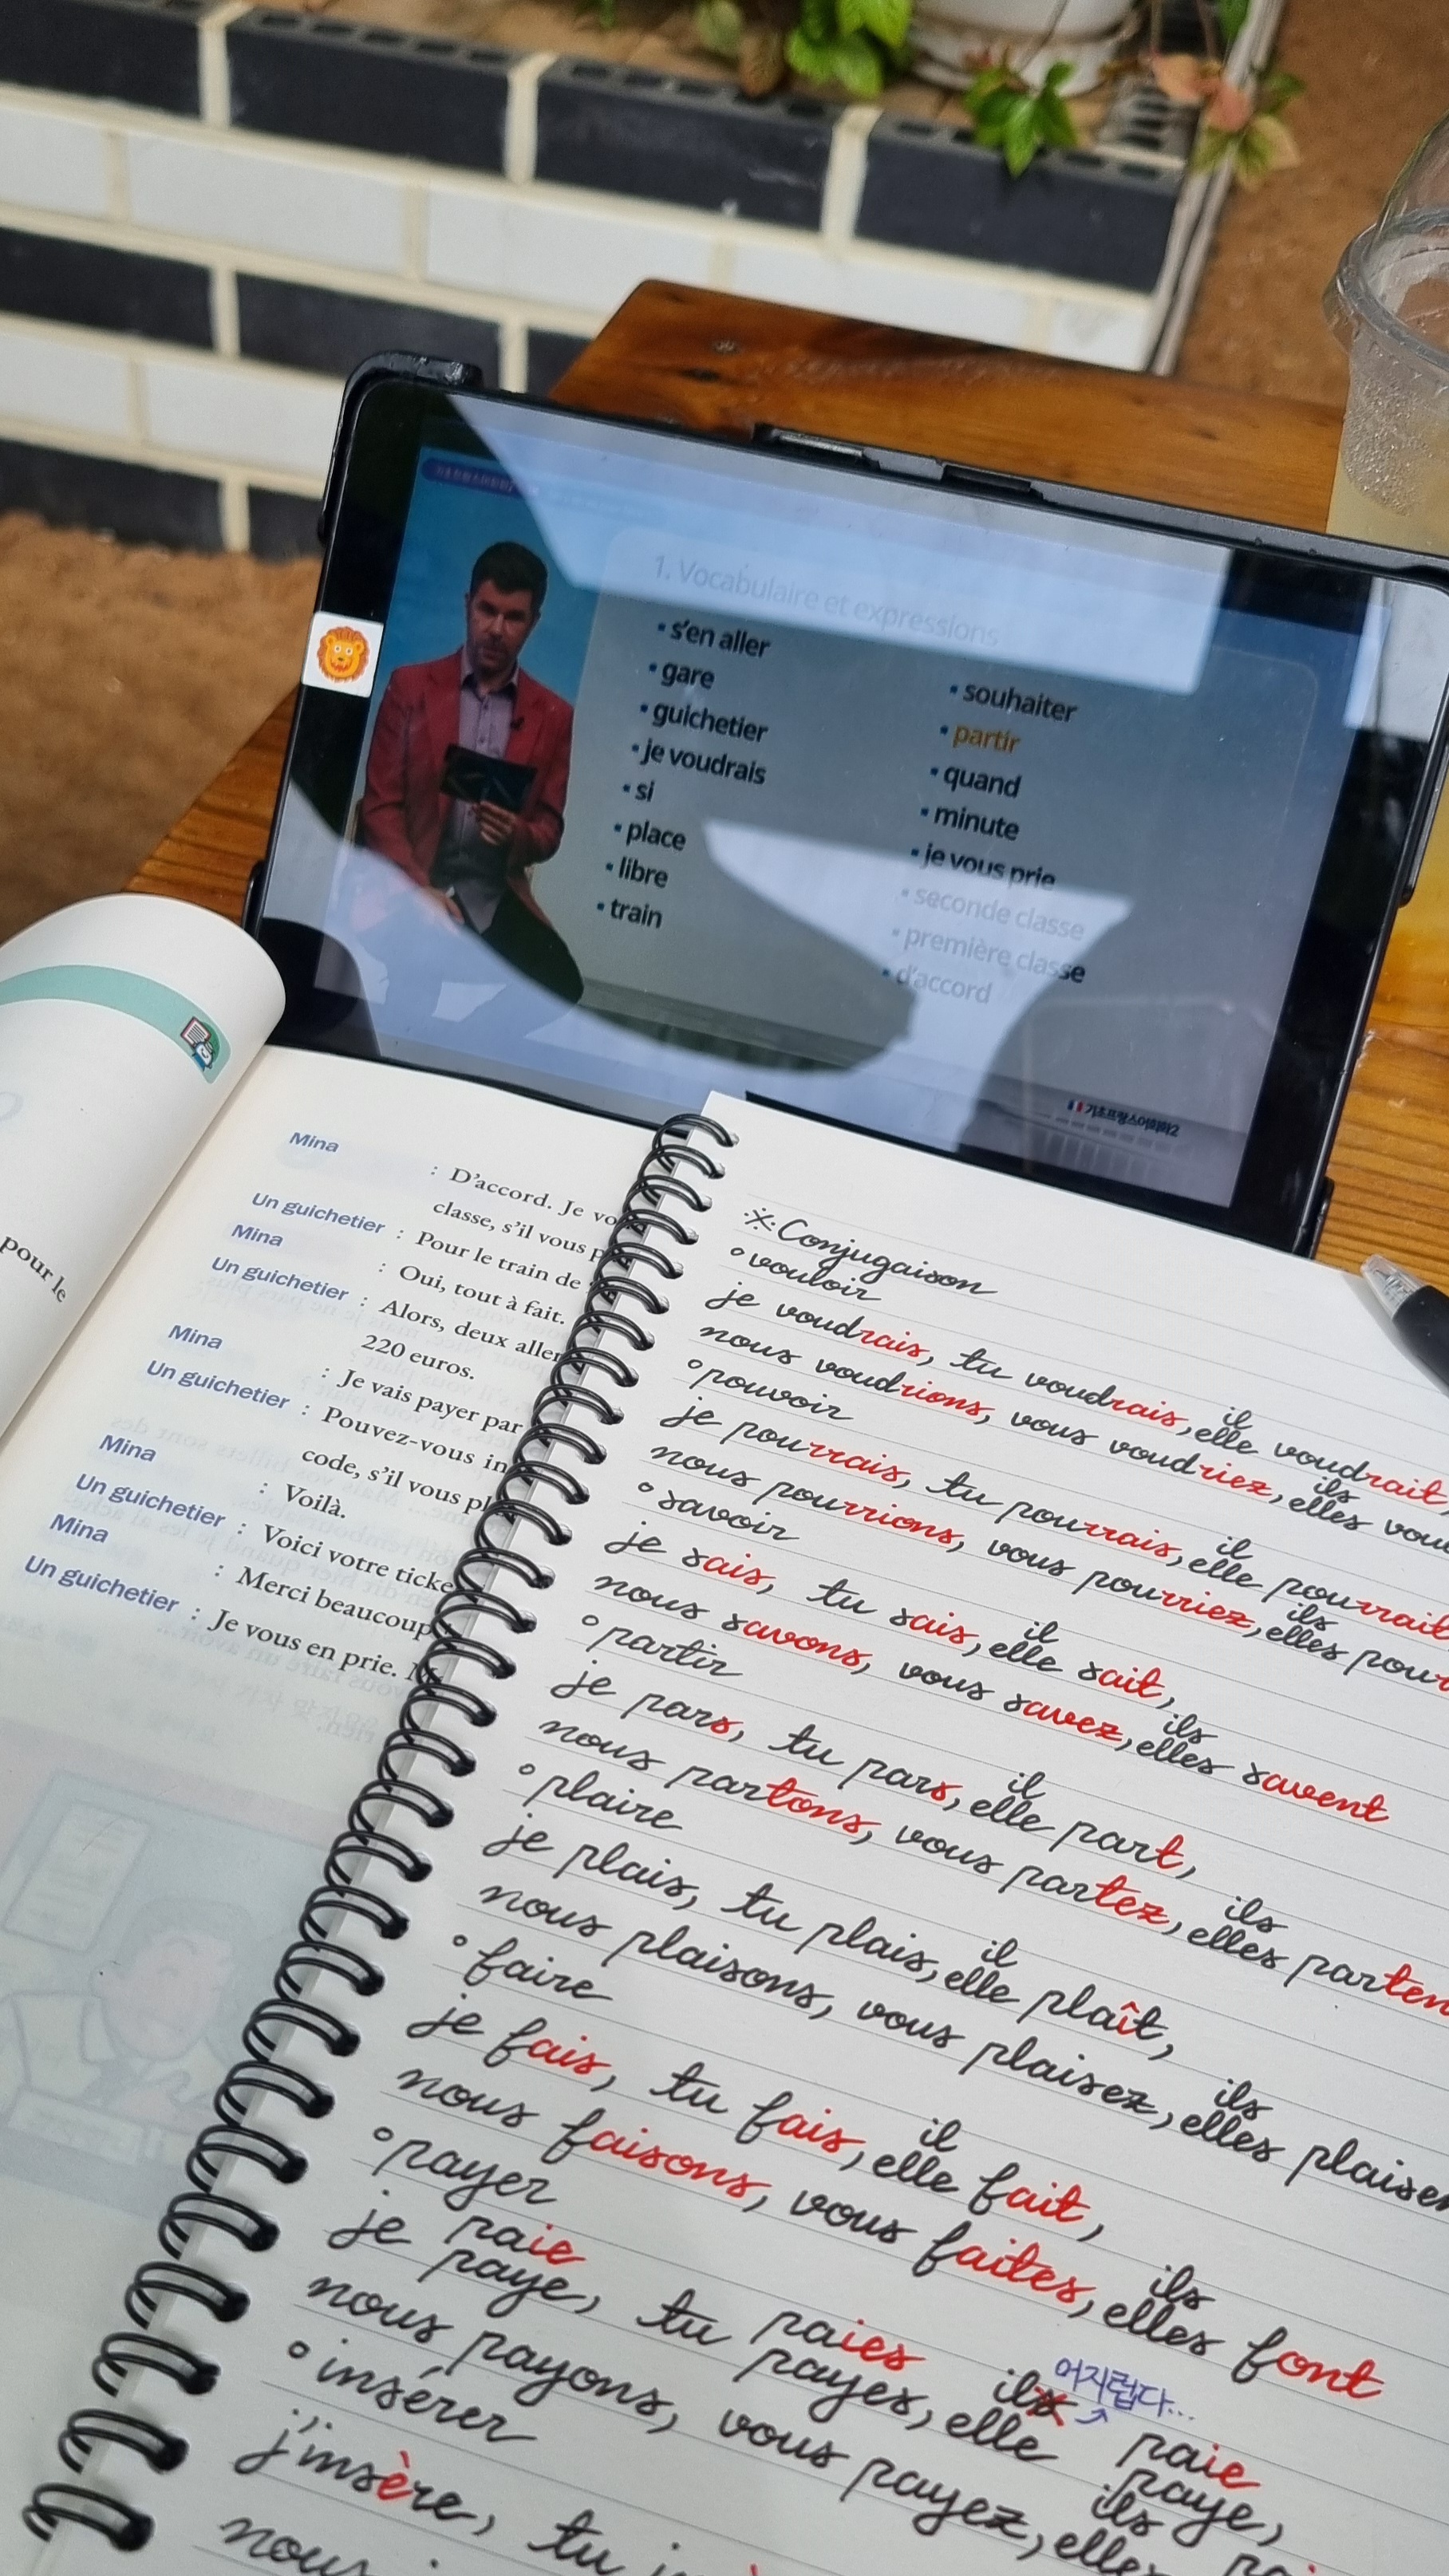 1. Vocabulaire et expressions
• s'en aller
• gare
• guichetier
• je voudrais
• si
• place
• libre
• train
• souhaiter
• partir
• quand
• minute
• je vous prie
• seconde classe
• première classe
• d'accord
기초프랑스어회화2
pour le
Mina : D'accord. Je
classe, s'il vous
Un guichetier : Pour le train de
Mina : Oui, tout à fait.
Un guichetier : Alors, deux
220 euros.
Mina : Je vais payer par
Un guichetier : Pouvez-vous
code, s'il vous
Mina : Voilà.
Un guichetier : Voici votre
Mina : Merci beaucoup
Un guichetier : Je vous en prie.
※ Conjugaison
° vouloir
je voudrais, tu voudrais, il elle voudrait,
nous voudrions, vous voudriez, ils elles
° pouvoir
je pourrais, tu pourrais, il elle pourrait
nous pourrions, vous pourriez, ils elles
° savoir
je sais, tu sais, il elle sait,
nous savons, vous savez, ils elles savent
° partir
je pars, tu pars, il elle part,
nous partons, vous partez, ils elles
° plaire
je plais, tu plais, il elle plaît,
nous plaisons, vous plaisez, ils elles
° faire
je fais, tu fais, il elle fait,
nous faisons, vous faites, ils elles font
° payer
je paie paye, tu paies payes, il elle paie paye,
어지럽다...
nous payons, vous payez, ils
° insérer
j'insère, tu